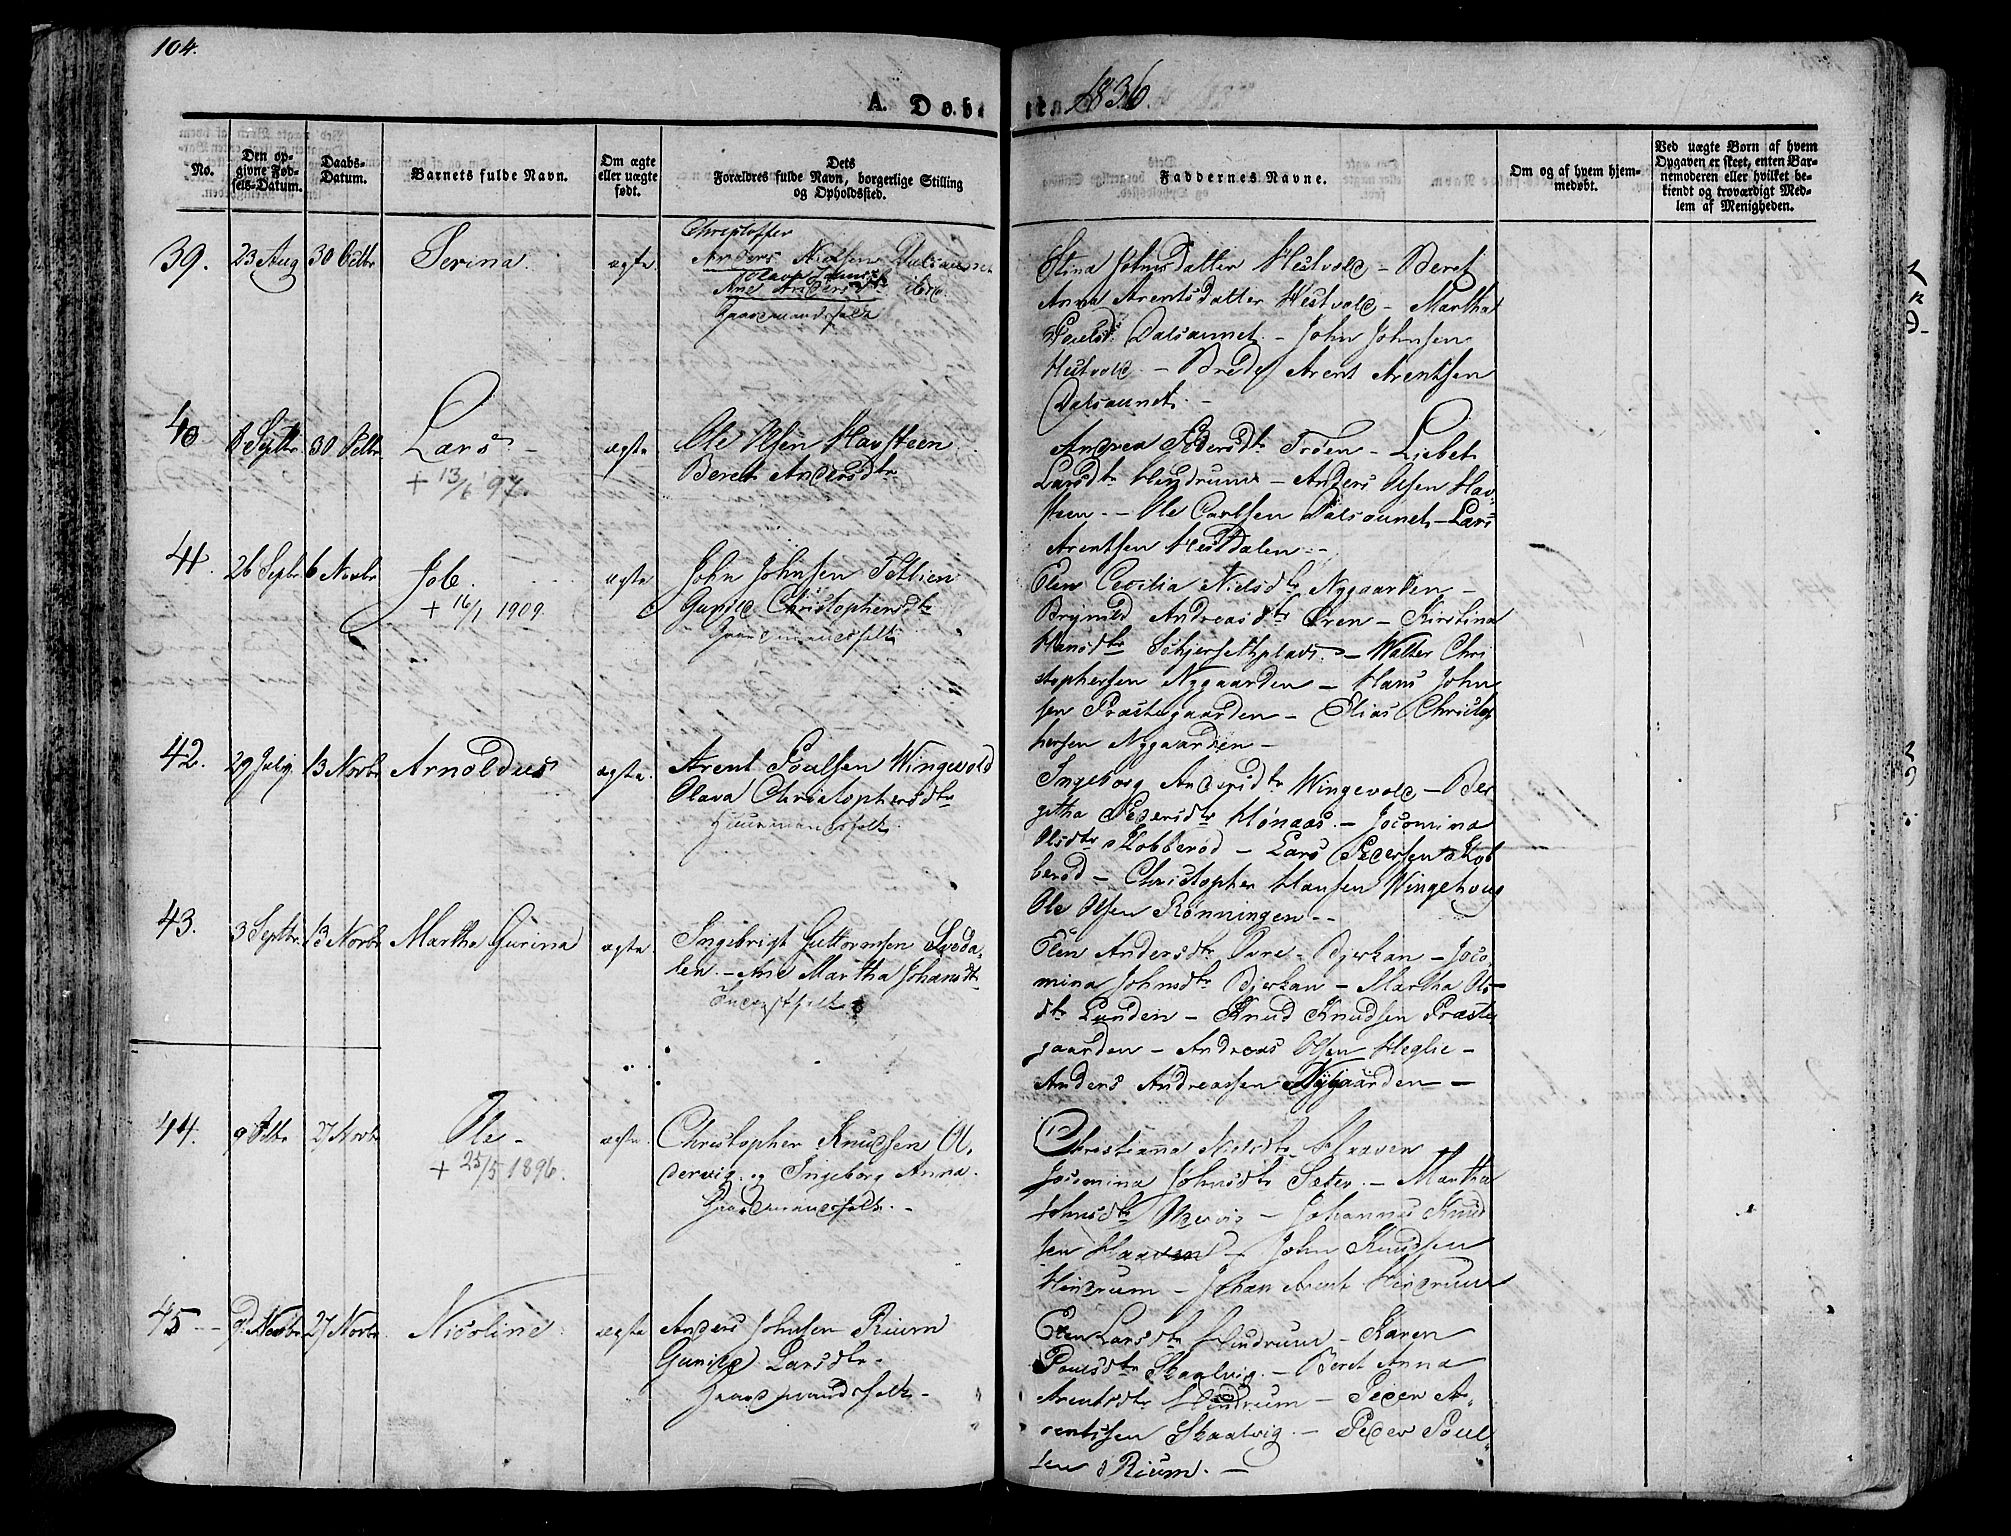 104.
1836.
A. Døbte.
No.
Den op-
givne Fød-
sels-Datum.
Daabs-
Datum.
Barnets fulde Navn.
Om ægte
eller uægte
født.
Dets
Forældres fulde Navn, borgerlige Stilling
og Opholdssted.
Faddernes Navne.
Om og af hvem hjem-
medøbt.
Ved uægte Børn af hvem
Opgaven er skeet, enten Bar-
nemoderen eller hvilket be-
kiendt og troværdigt Med-
lem af Menigheden.
39.
23 Aug
30 Octbr
Serina.
ægte
Christoffer
Anders Nielsen Dalsaunet
Ane Andersdtr ibid.
Gaardmandsfolk
Stina Johnsdatter Hestvold – Beret
Anna Arentsdatter Hestvold – Martha
Poulsd. Dalsaunet. – John Johnsen
Hestvold – Brede Arent Arentsen
Dalsaunet. –
40
8 Septbr
30 Octbr
Lars –
+ 13/6 97.
ægte
Ole Olsen Havsteen
Beret Andersdtr
Andrea Pedersdtr Trøen – Lisbet
Larsdtr Hindrum – Anders Olsen Hav-
steen. – Ole Carlsen Dalsaunet – Lars
Arentsen Hestdalen. –
41.
26 Septbr
6 Novbr
Job.
+ 16/1 1909.
ægte
John Johnsen
Gunild Christophersdtr
Gaardmandsfolk
Elen Cecilia Nielsdtr Nygaarden –
Brynild Andreasdtr Øren – Kirstina
Hansdtr Schjersethplads. – Walter Chri
stophersen Nygaarden – Hans John
sen Præstegaarden – Elias Christop
hersen Nygaarden –
42.
29 July
13 Novbr
Arnoldus
ægte.
Arent Poulsen Wingevold
Olava Christophersdtr
Huusmandsfolk.
Ingeborg Andersdtr Wingevold – Ber
githa Pedersdtr Hønaas. – Jocomina
Olsdtr Kobberød – Lars Pedersen Kob
berød – Christopher Hansen Wingehoug
Ole Olsen Rønningen. –
43.
3 Septbr
13 Novbr
Martha Gurina
ægte.
Ingebrigt Guttormsen Sveda-
len. – Ane Martha Johansdtr
Inderstfolk
Elen Andersdtr Øvre-Bjerkan – Joco
mina Johnsdtr Bjerkan – Martha Ols
dtr Lunden – Knud Knudsen Præste
gaarden – Andreas Olsen Heglie –
Anders Andreassen Nygaarden –
44.
9 Octbr
27 Novbr
Ole –
+ 25/5 1896.
ægte.
Christopher Knudsen Ol,
dervig. og Ingeborg Anna.
Gaardmandsfolk. –
Christianna Nielsdtr Haaven
Jocomina Johnsdtr Sæter. – Martha
Johnsdtr – Johannes Knud
sen Haaven – John Knudsen
Hindrum – Johan Arent Hindrum
45 –
27 Novbr
Nicoline
ægte
Anders Johnsen Rium
Gunild Larsdtr.
Gaardmandsfolk –
Elen Larsdtr Hindrum – Karen
Poulsdtr Skaalvig. – Beret Anna
Arentsdtr Hindrum – Peder A-
rentsen Skaalvig. – Peder Poul-
sen Rium. –